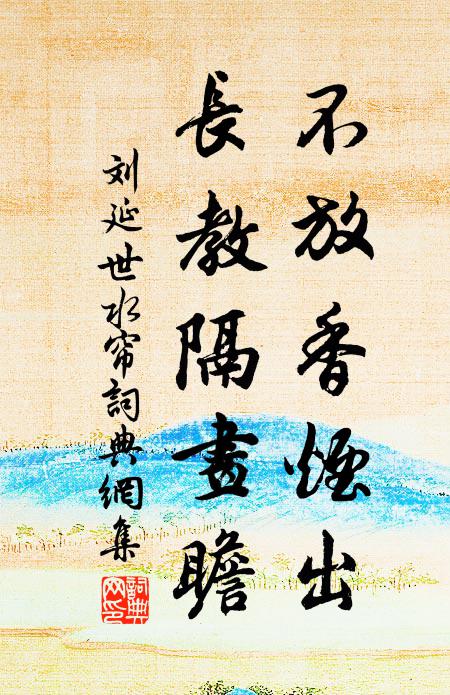 不放香煙出
長教隔畫瞻
刘延世水帘詞典網集